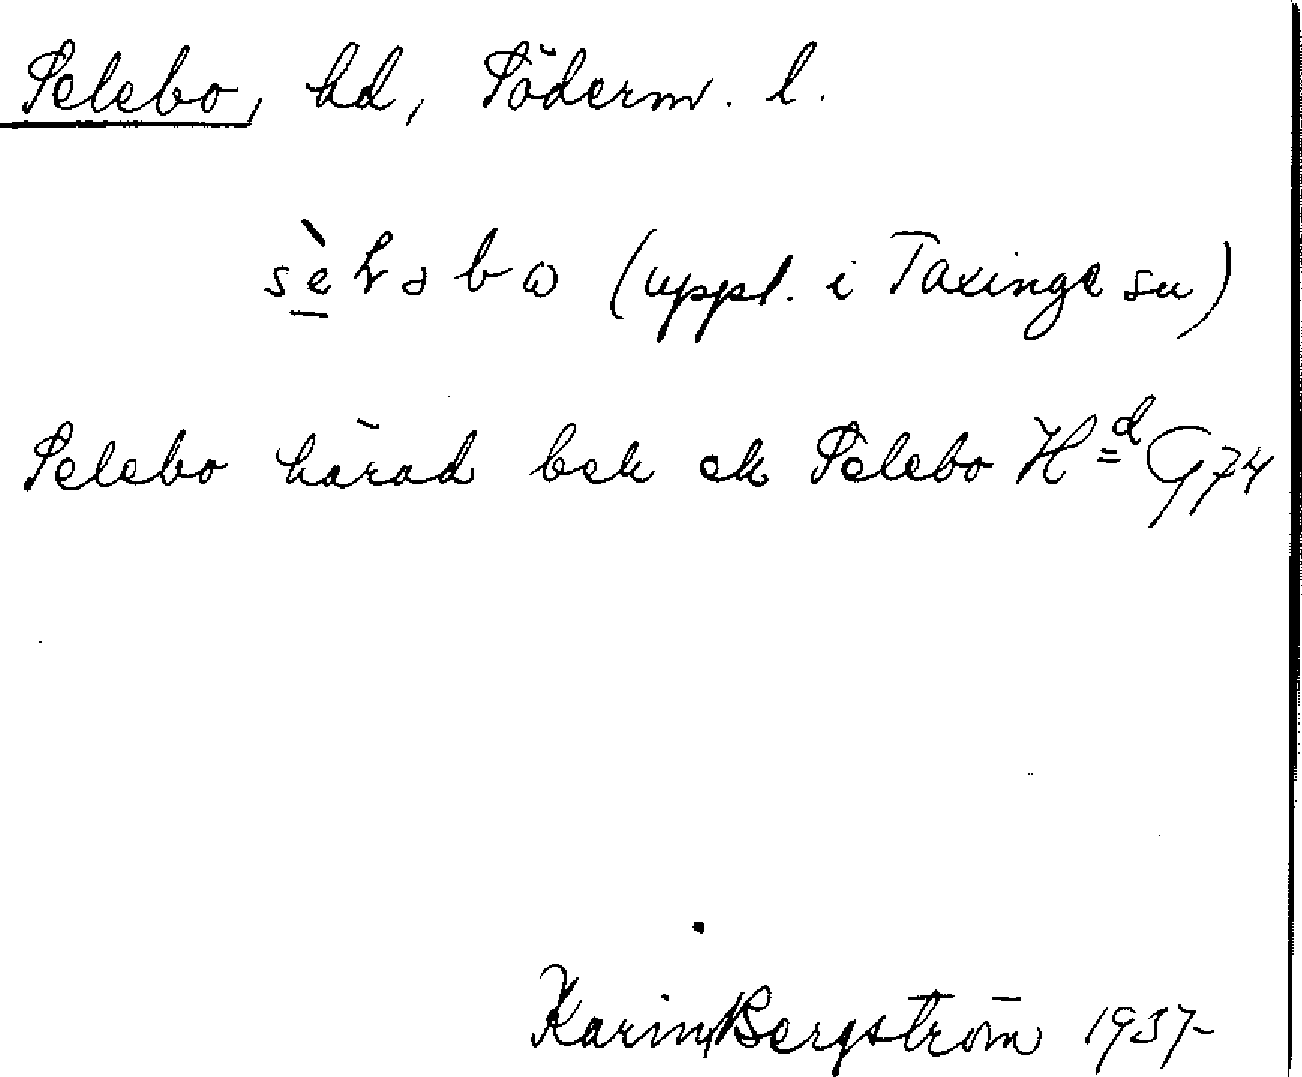 Selebo, hd, Söderm. l.
sè̠ɫəbω (uppl. i Taxinge sn)
Selebo härad bek ek Selebo H=d G74
Karin Bergström 1937